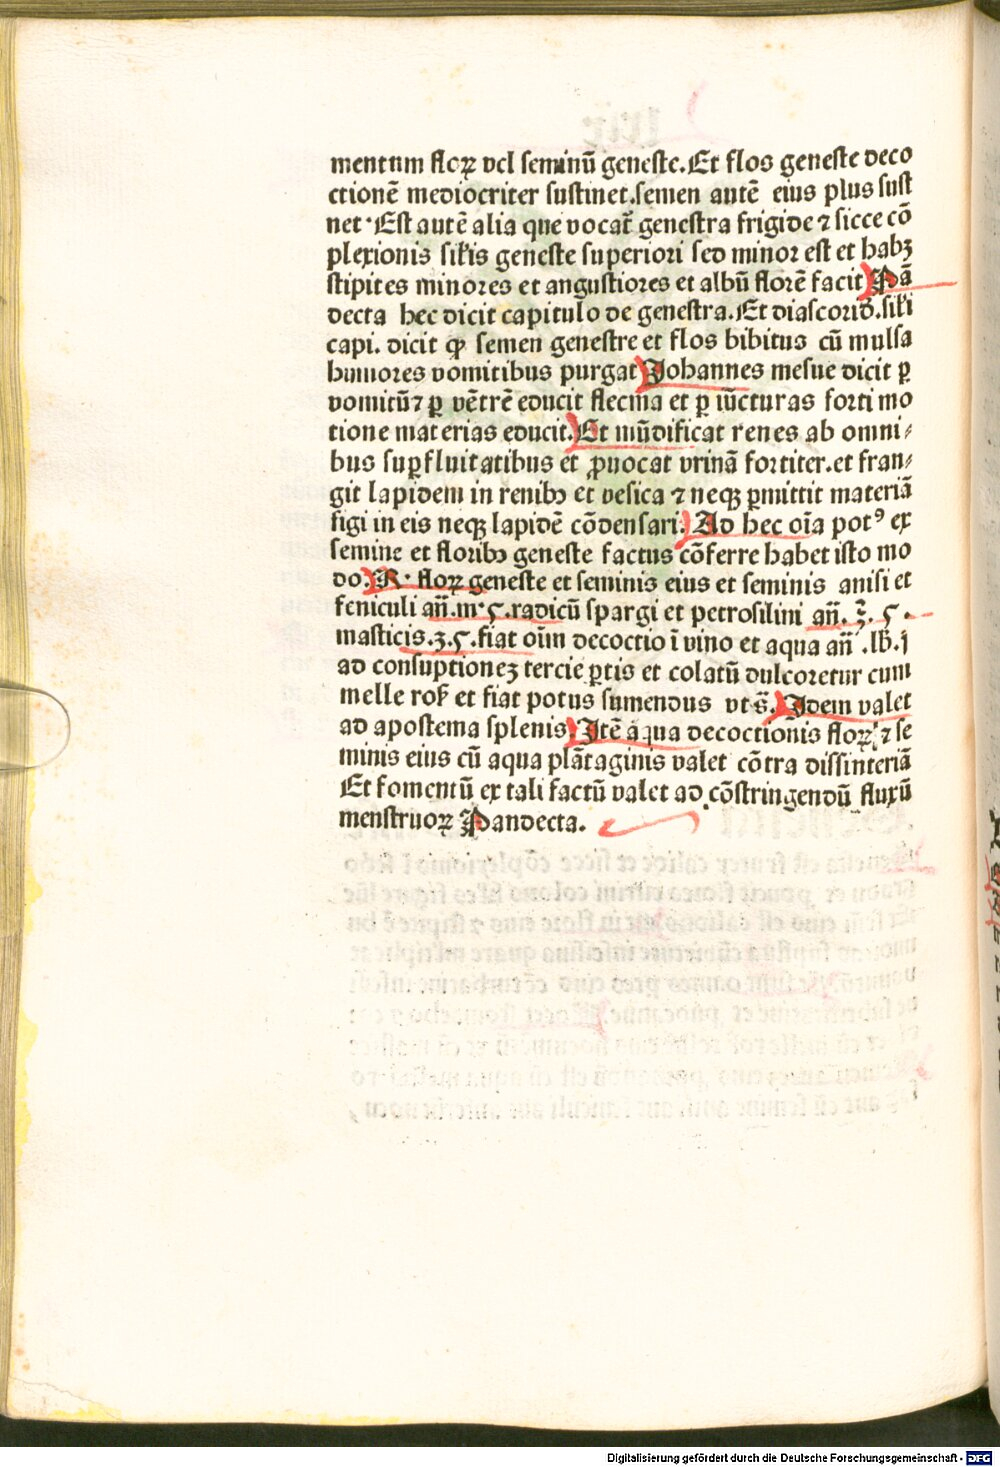 mentum floꝝ vel seminū geneste. Et flos geneste deco
ctionē mediocriter sustinet. semen autē eius plus sust
net · Est autē alia que vocat̄ genestra frigide ⁊ sicce cō
plexionis sił̄is geneste superiori sed minor est et habꝫ
stipites minores et angustiores et albū florē facit Pā
decta hec dicit capitulo de genestra. Et diascorid̄. sił̄i
capi. dicit ꝙ semen genestre et flos bibitus cū mulsa
humores vomitibus purgat Johannes mesue dicit ꝑ
vomitū ⁊ ꝑ vētrē educit flecma et ꝑ iūcturas forti mo
tione materias educit. Et mūdificat renes ab omni⸗
bus suꝑfluitatibus et ꝓuocat vrinā fortiter. et fran⸗
git lapidem in renibꝫ et vesica ⁊ neqꝫ ꝑmittit materiā
figi in eis neqꝫ lapidē cōdensari. Ad hec oīa potꝰ ex
semine et floribꝫ geneste factus cōferre habet isto mo
do. R · floꝝ geneste et seminis eius et seminis anisi et
feniculi an̄. m · ς. radicū spargi et petrosilini an̄. ʒ̄. ς ·
masticis. ʒ. ς. fiat oīm decoctio ī vino et aqua an̄ . lb̄. j
ad consuptioneꝫ tercie ꝑtis et colatū dulcoretur cum
melle ros̄ et fiat potus sumendus vt s̄. Idem valet
ad apostema splenis. Itē aqua decoctionis floꝝ ⁊ se
minis eius cū aqua plātaginis valet cōtra dissinteriā
Et fomentū ex tali factū valet ad cōstringendū fluxū
menstruoꝝ Pandecta.
Digitalisierung gefördert durch die Deutsche Forschungsgemeinschaft - DFG